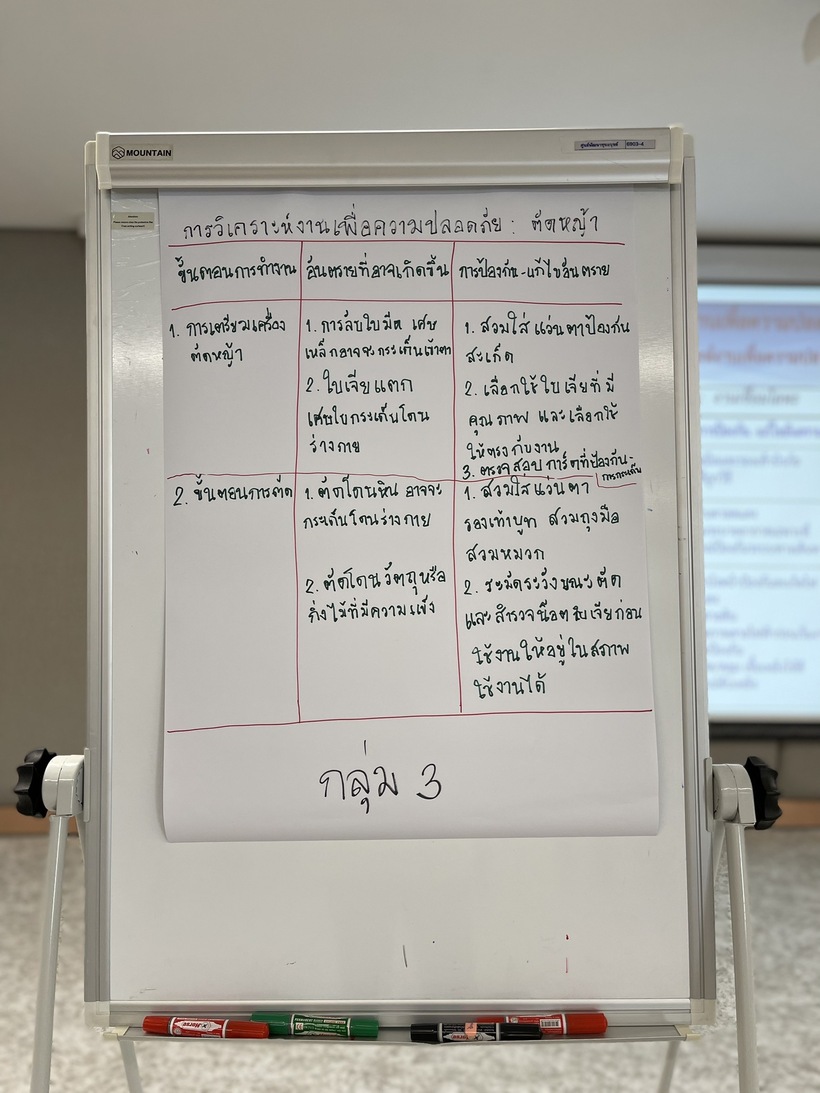 MOUNTAIN
การวิเคราะห์งานเพื่อความปลอดภัย : ตัดหญ้า
ขั้นตอนการทำงาน
อันตรายที่อาจเกิดขึ้น
การป้องกัน-แก้ไขอันตราย
1. การเตรียมเครื่อง
ตัดหญ้า
1. การลับใบมีด เศษ
เหล็กอาจจะกระเด็นเข้าตา
2. ใบเจียแตก
เศษใบกระเด็นโดน
ร่างกาย
1. สวมใส่แว่นตาป้องกัน
สะเก็ด
2. เลือกใช้ใบเจียที่มี
คุณภาพ และเลือกใช้
ให้ตรงกับงาน
3. ตรวจสอบการ์ดที่ป้องกัน-
การกระเด็น
2. ขั้นตอนการตัด
1. ตัดโดนหิน อาจจะ
กระเด็นโดนร่างกาย
2. ตัดโดนวัตถุหรือ
กิ่งไม้ที่มีความแข็ง
1. สวมใส่แว่นตา
รองเท้าบูท สวมถุงมือ
สวมหมวก
2. ระมัดระวังขณะตัด
และสำรวจน๊อตใบเจียก่อน
ใช้งานให้อยู่ในสภาพ
ใช้งานได้
กลุ่ม 3